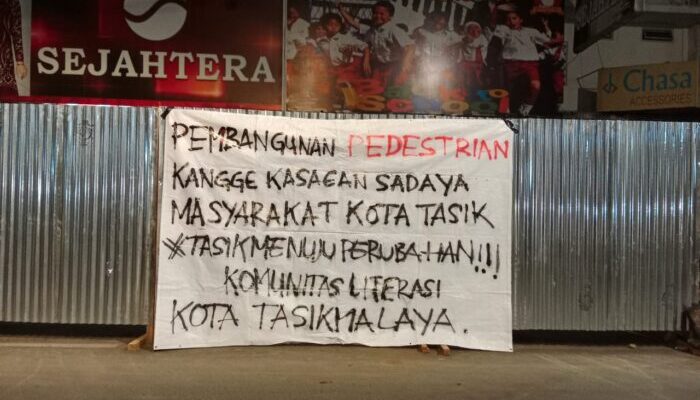 SEJAHTERA
Back to School
Chasa
ACCESSORIES
PEMBANGUNAN PEDESTRIAN
KANGGE KASAEAN SADAYA
MASYARAKAT KOTA TASIK
#TASIKMENUJUPERUBAHAN!!!
KOMUNITAS LITERASI
KOTA TASIKMALAYA.